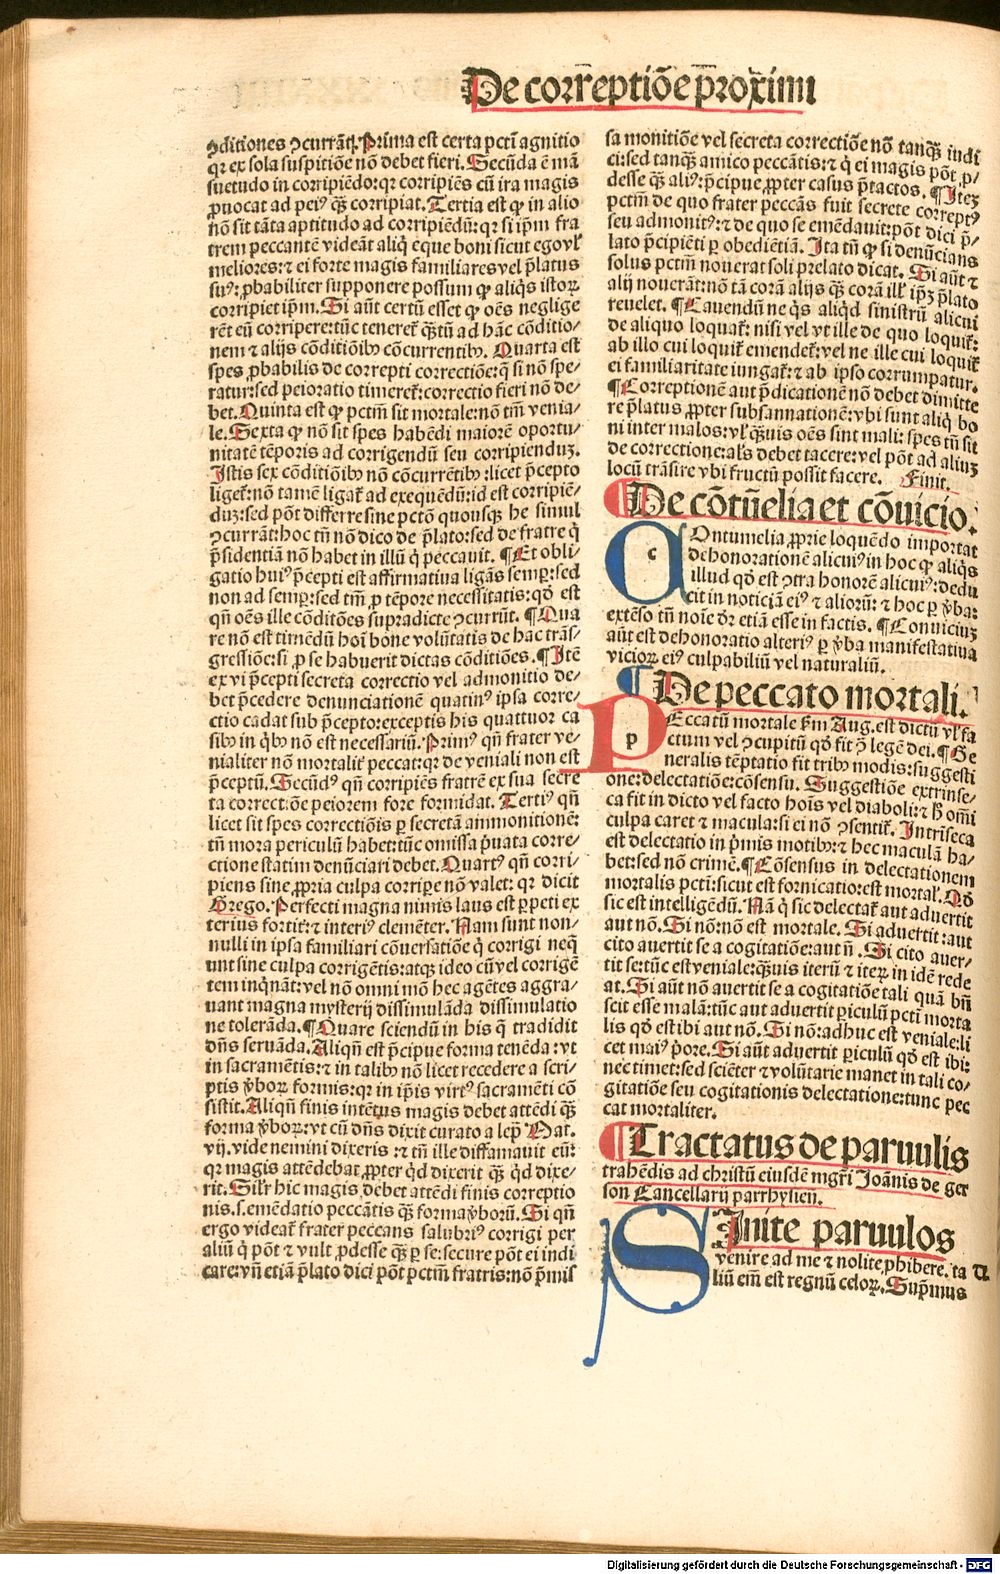 De correptiõe p̄roximi
ꝯditiones ꝯcurrãt. Prima est certa pctĩ agnitio
qꝛ ex sola suspitiõe nõ debet fieri. Secũda ẽ mã
suetudo in corripiẽdo: qꝛ corripiẽs cũ ira magis
ꝓuocat ad peiꝰ qȝ corripiat. Tertia est ꝙ in alio
nõ sit tãta aptitudo ad corripiẽdũ: qꝛ si ip̃m fra
trem peccantẽ videãt aliq̃ eque boni sicut ego vl̓
meliores: ⁊ ei forte magis familiares vel p̃latus
suꝰ: ꝓbabiliter supponere possum ꝙ aliq̃s istoꝝ
corripiet ip̃m. Si aũt certũ esset ꝙ oẽs neglige
rẽt eũ corripere: tũc teneret̃ q̃ȝtũ ad hãc cõditio⸗
nem ⁊ alijs cõditiõibꝰ cõcurrentibꝰ. Quarta est
spes ꝓbabilis de correpti correctiõe: q̃ si nõ spe⸗
ratur: sed peioratio timeret̃: correctio fieri nõ de⸗
bet. Quinta est ꝙ pctm̃ sit mortale: nõ tm̃ venia⸗
le. Sexta ꝙ nõ sit spes habẽdi maiorẽ oportu⸗
nitatẽ tẽporis ad corrigendũ seu corripienduȝ.
Istis sex cõditiõibꝰ nõ cõcurrẽtibꝰ: licet p̃cepto
liget̃: nõ tamẽ ligat̃ ad exequẽdũ: id est corripiẽ⸗
duȝ: sed põt differre sine pctõ quousqȝ he simul
ꝯcurrãt: hoc tñ nõ dico de p̃lato: sed de fratre q̃
p̃sidentiã nõ habet in illũ q̃ peccauit. ¶Et obli⸗
gatio huiꝰ p̃cepti est affirmatiua ligãs semꝑ: sed
non ad semꝑ: sed tm̃ ꝓ tẽpore necessitatis: qð est
qñ oẽs ille cõditões supradicte ꝯcurrũt. ¶Qua
re nõ est timẽdũ hoĩ bone volũtatis de hac trãs⸗
gressiõe: si ꝓ se habuerit dictas cõditiões. ¶Itẽ
ex vi p̃cepti secreta correctio vel admonitio de⸗
bet p̃cedere denunciationẽ quatinꝰ ipsa corre⸗
ctio cadat sub p̃cepto: exceptis his quattuor ca
sibꝰ in q̃bꝰ nõ est necessariũ. Primꝰ qñ frater ve⸗
nialiter non mortalit̃ peccat: qꝛ de veniali non est
p̃ceptũ. Secũdꝰ qñ corripiẽs fratrẽ ex sua secre
ta correctiõe peiorem fore formidat. Tertiꝰ qñ
licet sit spes correctiõis ꝑ secretã ammonitionẽ:
tñ mora periculũ habet: tũc omissa p̃uata corre⸗
ctione statim denũciari debet. Quartꝰ qñ corri⸗
piens sine ꝓpria culpa corripe nõ valet: qꝛ dicit
Grego. Perfecti magna nimis laus est ꝑpeti ex
terius fortit̃: ⁊ interiꝰ clemẽter. Nam sunt non⸗
nulli in ipsa familiari cõuersatiõe q̃ corrigi neq̃
unt sine culpa corrigẽtis: atqȝ ideo cũ vel corrigẽ
tem inq̃nãt: vel nõ omni mõ hec agẽtes aggra⸗
uant magna mysterij dissimulãda dissimulatio
ne tolerãda. ¶Quare sciendũ in his q̃ tradidit
dñs seruãda. Aliqñ est p̃cipue forma tenẽda: vt
in sacramẽtis: ⁊ in talibꝰ nõ licet recedere a scri⸗
ptis ṽboꝝ formis: qꝛ in ip̃is virtꝰ sacramẽti cõ
sistit. Aliqñ finis intẽtus magis debet attẽdi q̃ȝ
forma ṽboꝝ: vt cũ dñs dixit curato a lep̃ Mat.
vij. vide nemini dixeris: ⁊ tñ ille diffamauit eũ:
qꝛ magis attẽdebat ꝓpter qð dixerit q̃ȝ qð dixe⸗
rit. Sil̓r hic magis debet attẽdi finis correptio
nis. s. emẽdatio peccãtis q̃ȝ forma ṽborũ. Si qñ
ergo videat̃ frater peccans salubriꝰ corrigi per
aliũ q̃ põt ⁊ vult ꝓdesse q̃ȝ ꝑ se: secure põt ei indi
care: vñ etiã p̃lato dici põt pctm̃ fratris: nõ p̃mis
sa monitiõe vel secreta correctiõe nõ tanq̃ȝ iudi
ci: sed tanq̃ȝ amico peccãtis: ⁊ q̃ ei magis põt ꝓ⸗
desse q̃ȝ aliꝰ: p̃cipue ꝓpter casus p̃tactos. ¶Iteȝ
pctm̃ de quo frater peccãs fuit secrete correptꝰ
seu admonitꝰ: ⁊ de quo se emẽdauit: põt dici p̃⸗
lato p̃cipiẽti ꝑ obediẽtiã. Ita tñ ꝙ si denũcians
solus pctm̃ nouerat soli prelato dicat. Si aũt ⁊
alij nouerãt: nõ tã corã alijs q̃ȝ corã ill̓ ip̃ȝ p̃lato
reuelet. ¶Cauendũ ne q̃s aliq̃d sinistrũ alicui
de aliquo loquat̃: nisi vel vt ille de quo loquit̃:
ab illo cui loquit̃ emendet̃: vel ne ille cui loquit̃
ei familiaritate iungat̃: ⁊ ab ipso corrumpatur.
¶Correptionẽ aut p̃dicationẽ nõ debet dimitte
re p̃latus ꝓpter subsannationẽ: vbi sunt aliq̃ bo
ni inter malos: vl̓ q̃ȝuis oẽs sint mali: spes tñ sit
de correctione: al̓s debet tacere: vel põt ad aliuȝ
locũ trãsire vbi fructũ possit facere. Finit.
¶De cõtũelia et cõuicio.
COntumelia ꝓprie loquẽdo importat
dehonorationẽ alicuiꝰ in hoc ꝙ aliq̃s
illud qð est ꝯtra honorẽ alicuiꝰ: dedu
cit in noticiã eiꝰ ⁊ aliorũ: ⁊ hoc ꝑ ṽba:
extẽso tñ noĩe dr̃ etiã esse in factis. ¶Conuiciuȝ
aũt est dehonoratio alteriꝰ ꝑ ṽba manifestatiua
vicioꝝ eiꝰ culpabiliũ vel naturaliũ.
¶De peccato mortali.
PEccatũ mortale fm̃ Aug. est dictũ vl̓ fa
ctum vel ꝯcupitũ qð fit ꝯ̃ legẽ dei. ¶Ge
neralis tẽptatio fit tribꝰ modis: suggesti
one: delectatiõe: cõsensu. Suggestiõe extrinse⸗
ca fit in dicto vel facto hoĩs vel diaboli: ⁊ h̃ om̃i
culpa caret ⁊ macula: si ei nõ ꝯsentit̃. Intrĩseca
est delectatio in p̃mis motibꝰ: ⁊ hec maculã ha⸗
bet: sed nõ crimẽ. ¶Cõsensus in delectationem
mortalis pctĩ: sicut est fornicatio: est mortal̓. Qð
sic est intelligẽdũ. Nã q̃ sic delectat̃ aut aduertit
aut nõ. Si nõ: nõ est mortale. Si aduertit: aut
cito auertit se a cogitatiõe: aut ñ. Si cito auer⸗
tit se: tũc est veniale: q̃ȝuis iterũ ⁊ iteꝝ in idẽ rede
at. Si aũt nõ auertit se a cogitatiõe tali quã bñ
scit esse malã: tũc aut aduertit ꝑiculũ pctĩ morta
lis qð est ibi aut nõ. Si nõ: adhuc est veniale: li
cet maiꝰ p̃ore. Si aũt aduertit ꝑiculũ qð est ibi:
nec timet: sed sciẽter ⁊ volũtarie manet in tali co⸗
gitatiõe seu cogitationis delectatione: tunc pec
cat mortaliter.
¶Tractatus de paruulis
trahẽdis ad christũ eiusdẽ mgr̃i Joãnis de ger
son Cancellarij parrhysieñ.
SInite paruulos
venire ad me ⁊ nolite ꝓhibere. ta
liũ em̃ est regnũ celoꝝ. Sup̃mus